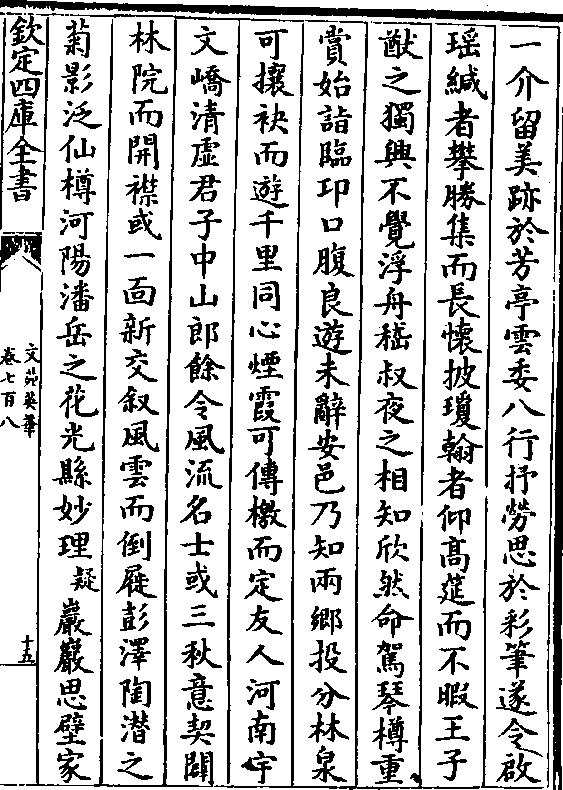 一介留美跡於芳亭雲委八行抒勞思於彩筆遂令啟
瑶緘者攀勝集而長懷披瓊翰者仰髙筵而不暇王子
猷之獨興不覺浮舟嵇叔夜之相知欣然命駕琴樽重
賞始詣臨卭口腹良遊未辭安邑乃知兩鄉投分林泉
可攘袂而遊千里同心煙霞可傳檄而定友人河南宇
文嶠清虚君子中山郎餘令風流名士或三秋意契闢
林院而開襟或一面新交叙風雲而倒屣彭澤陶潛之
菊影泛仙樽河陽潘岳之花光縣妙理疑巖巖思壁家
欽定四庫全書
文苑英華
卷七百八
十五